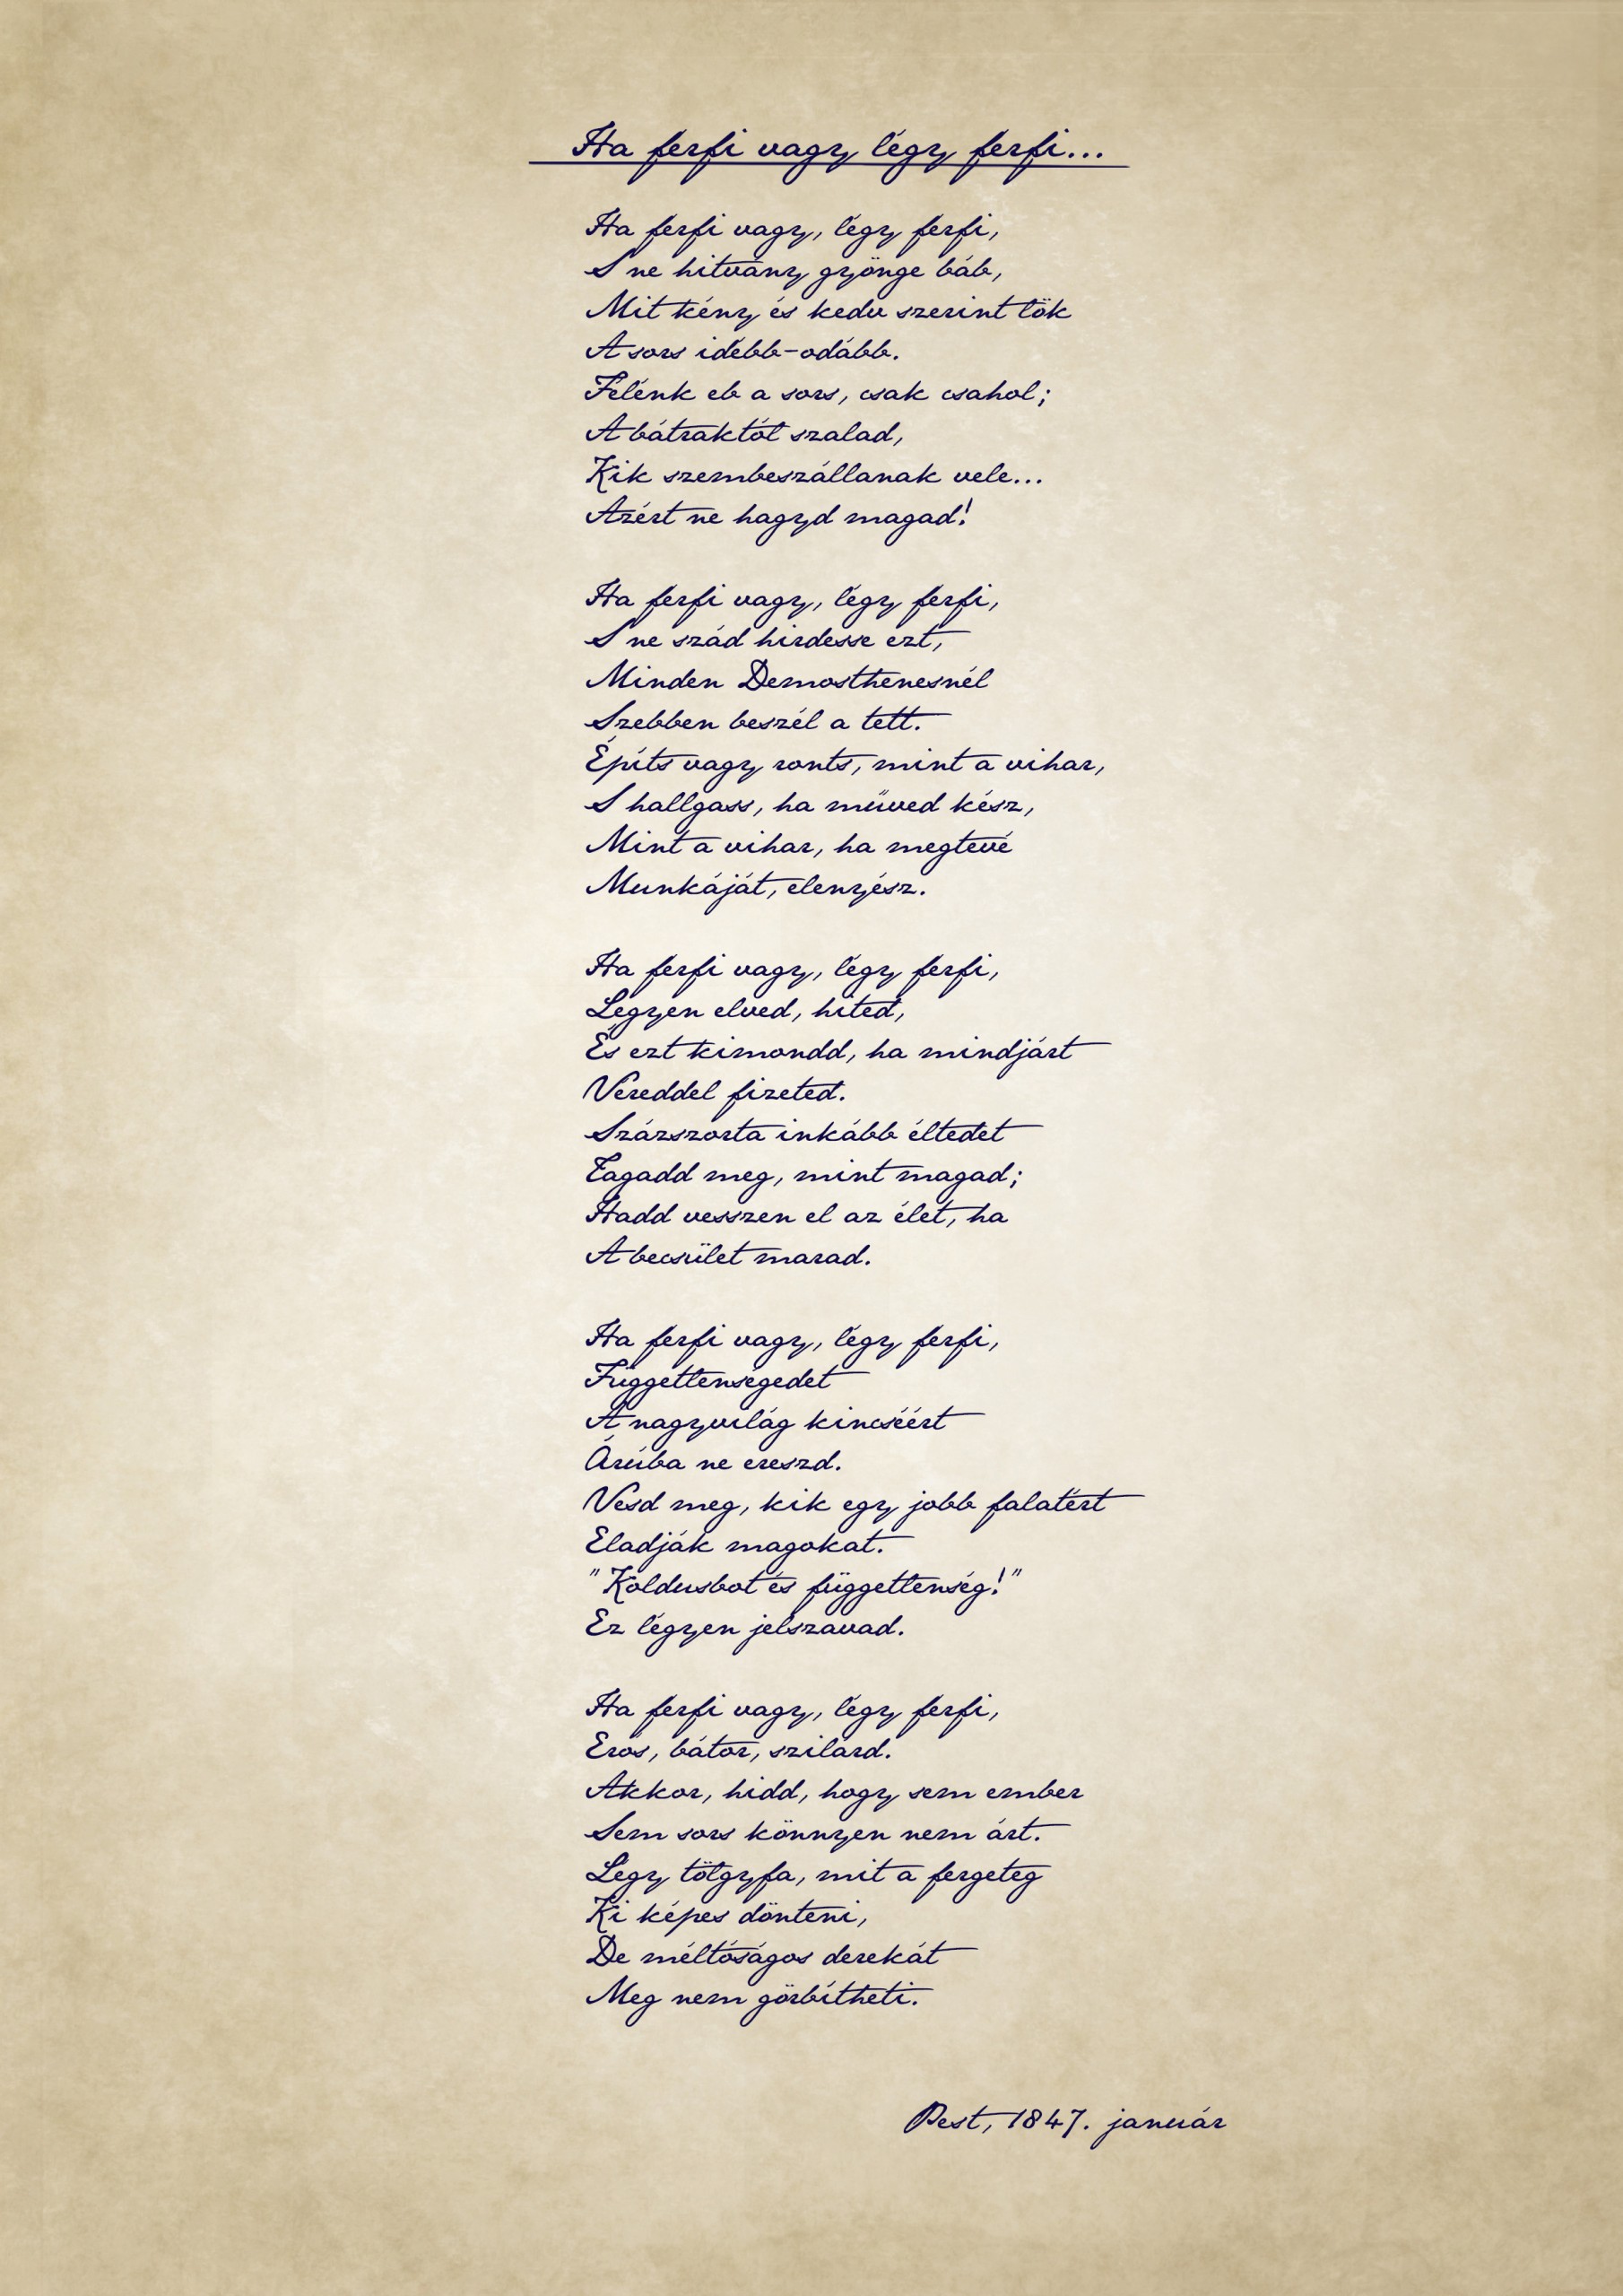 Ha férfi vagy légy férfi...
Ha férfi vagy, légy férfi,
S ne hitvány gyönge báb,
Mit kény és kedv szerint lök
A sors idébb-odább.
Félénk eb a sors, csak csahol;
A bátraktól szalad,
Kik szembeszállanak vele...
Azért ne hagyd magad!
Ha férfi vagy, légy férfi,
S ne szád hirdesse ezt,
Minden Demosthenesnél
Szebben beszél a tett.
Építs vagy ronts, mint a vihar,
S hallgass, ha műved kész,
Mint a vihar, ha megtevé
Munkáját, elenyész.
Ha férfi vagy, légy férfi,
Légyen elved, hited,
És ezt kimondd, ha mindjárt
Véreddel fizeted.
Százszorta inkább éltedet
Tagadd meg, mint magad;
Hadd vesszen el az élet, ha
A becsület marad.
Ha férfi vagy, légy férfi,
Függetlenségedet
A nagyvilág kincséért
Árúba ne ereszd.
Vesd meg, kik egy jobb falatért
Eladják magokat.
"Koldusbot és függetlenség!"
Ez légyen jelszavad.
Ha férfi vagy, légy férfi,
Erős, bátor, szilárd.
Akkor, hidd, hogy sem ember
Sem sors könnyen nem árt.
Légy tölgyfa, mit a fergeteg
Ki képes dönteni,
De méltóságos derekát
Meg nem görbítheti.
Pest, 1847. január